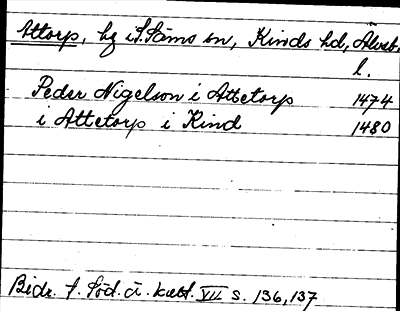 Attorp, hg i S. Säms sn, Kinds hd, Älvsb.
l.
Peder Nigelson i Attetorp 1474
i Attetorp i Kind 1480
Bidr. t. Söd. Ä. kult. VII s. 136, 137